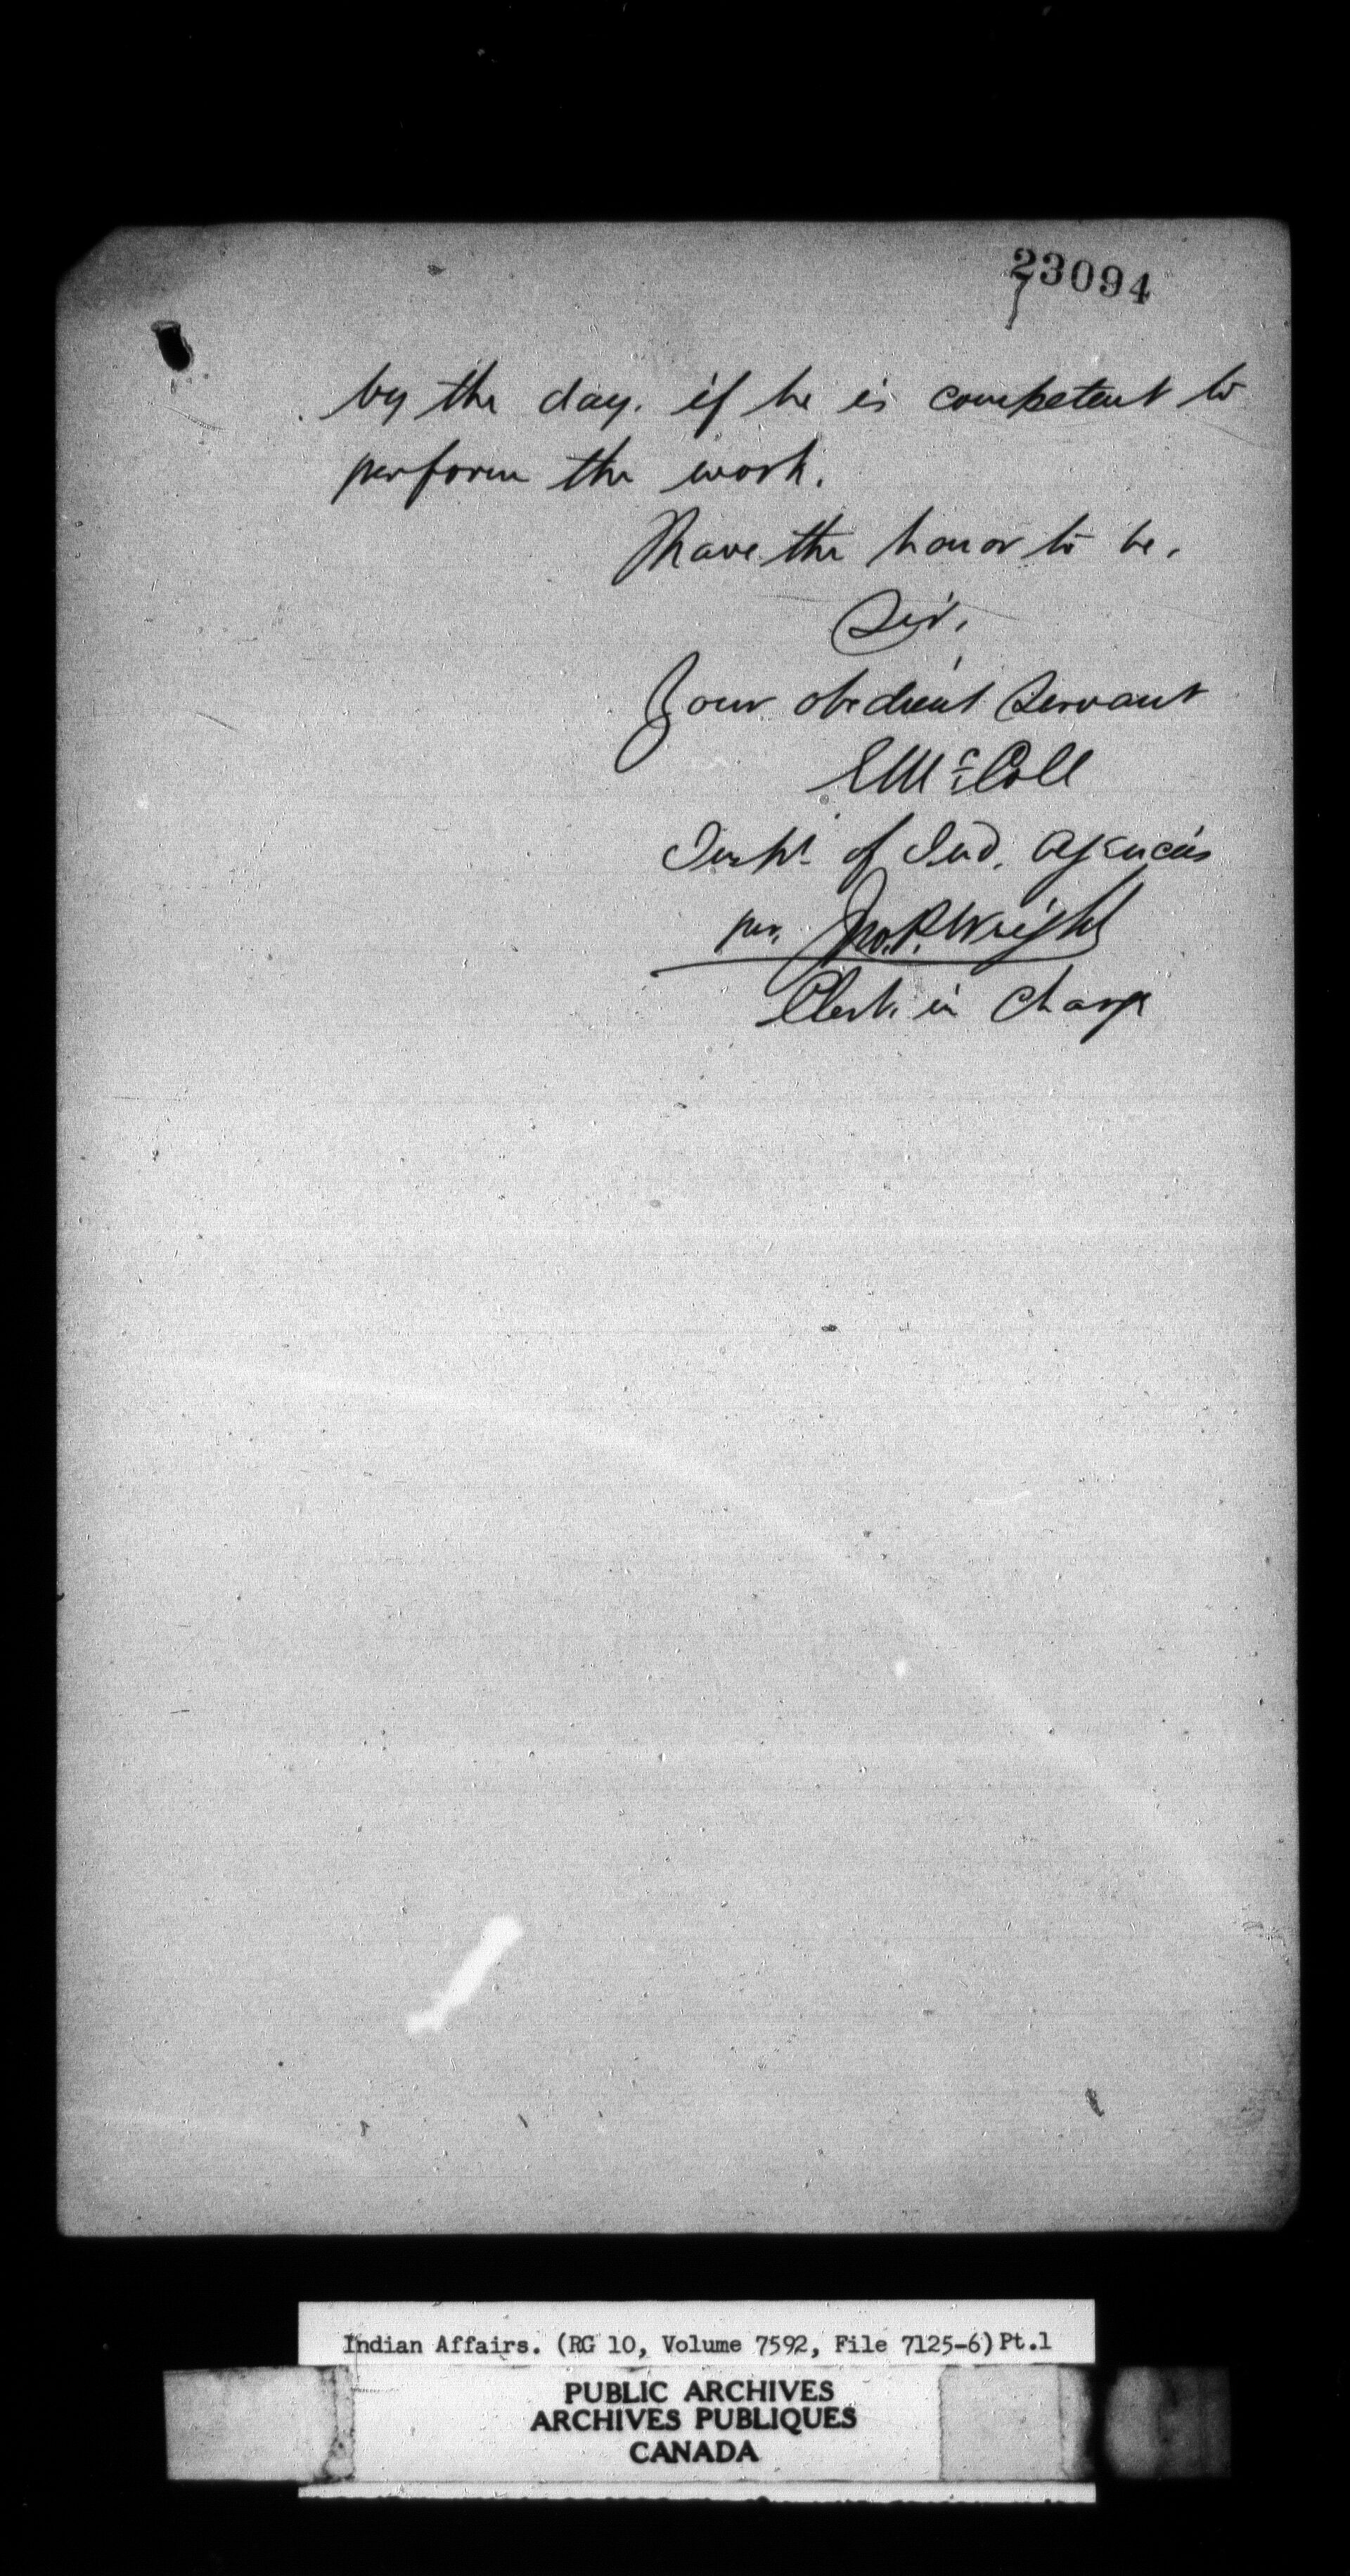 23094
by the day. if he is competent to
perform the work.
I have the honor to be,
Sir,
Your obedient Servant
E McColl
Inspt. of Ind. Agencies
per, Jno. P. Wright
Clerk in Charge
Indian Affairs. (RG 10, Volume 7592, File 7125-6) Pt.1
PUBLIC ARCHIVES
ARCHIVES PUBLIQUES
CANADA